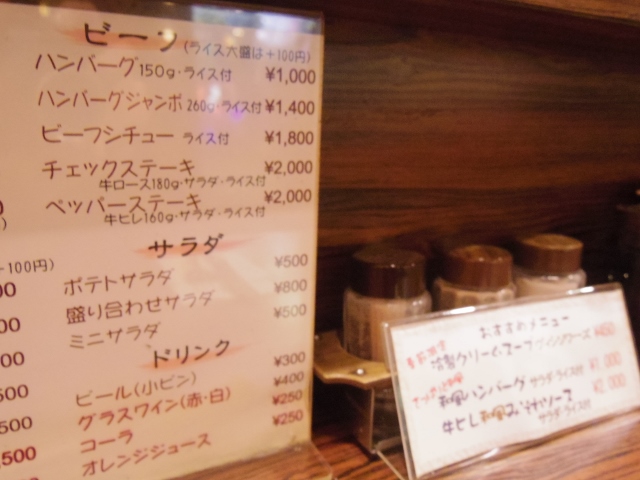 ビーフ(ライス大盛は+100円)
ハンバーグ150g・ライス付 ¥1,000
ハンバーグジャンボ 260g・ライス付 ¥1,400
ビーフシチュー ライス付 ¥1,800
チェックステーキ ¥2,000
牛ロース180g・サラダ・ライス付
ペッパーステーキ ¥2,000
牛ヒレ160g・サラダ・ライス付
サラダ
+100円)
ポテトサラダ ¥500
盛り合わせサラダ ¥800
ミニサラダ ¥500
ドリンク
ビール(小ビン) ¥300
グラスワイン(赤・白) ¥400
コーラ ¥250
オレンジジュース ¥250
おすすめメニュー
冷製クリームスープ ¥450
和風ハンバーグ サラダ・ライス付 ¥1,000
牛ヒレ ソース ¥2,000
サラダ・ライス付